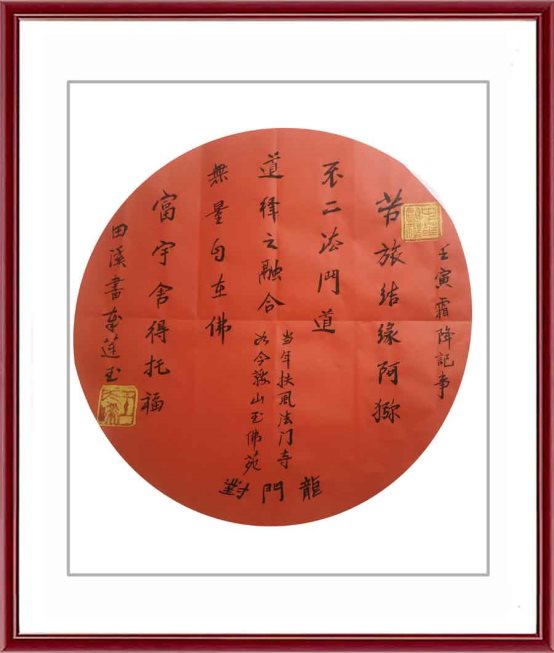 壬寅霜降記事
苦旅结缘阿猕
不二法門道
道释之融合
無量自在佛
富宇舍得托福
田溪書東莲玉
当年扶風法门寺
如今鞍山玉佛苑
龍門